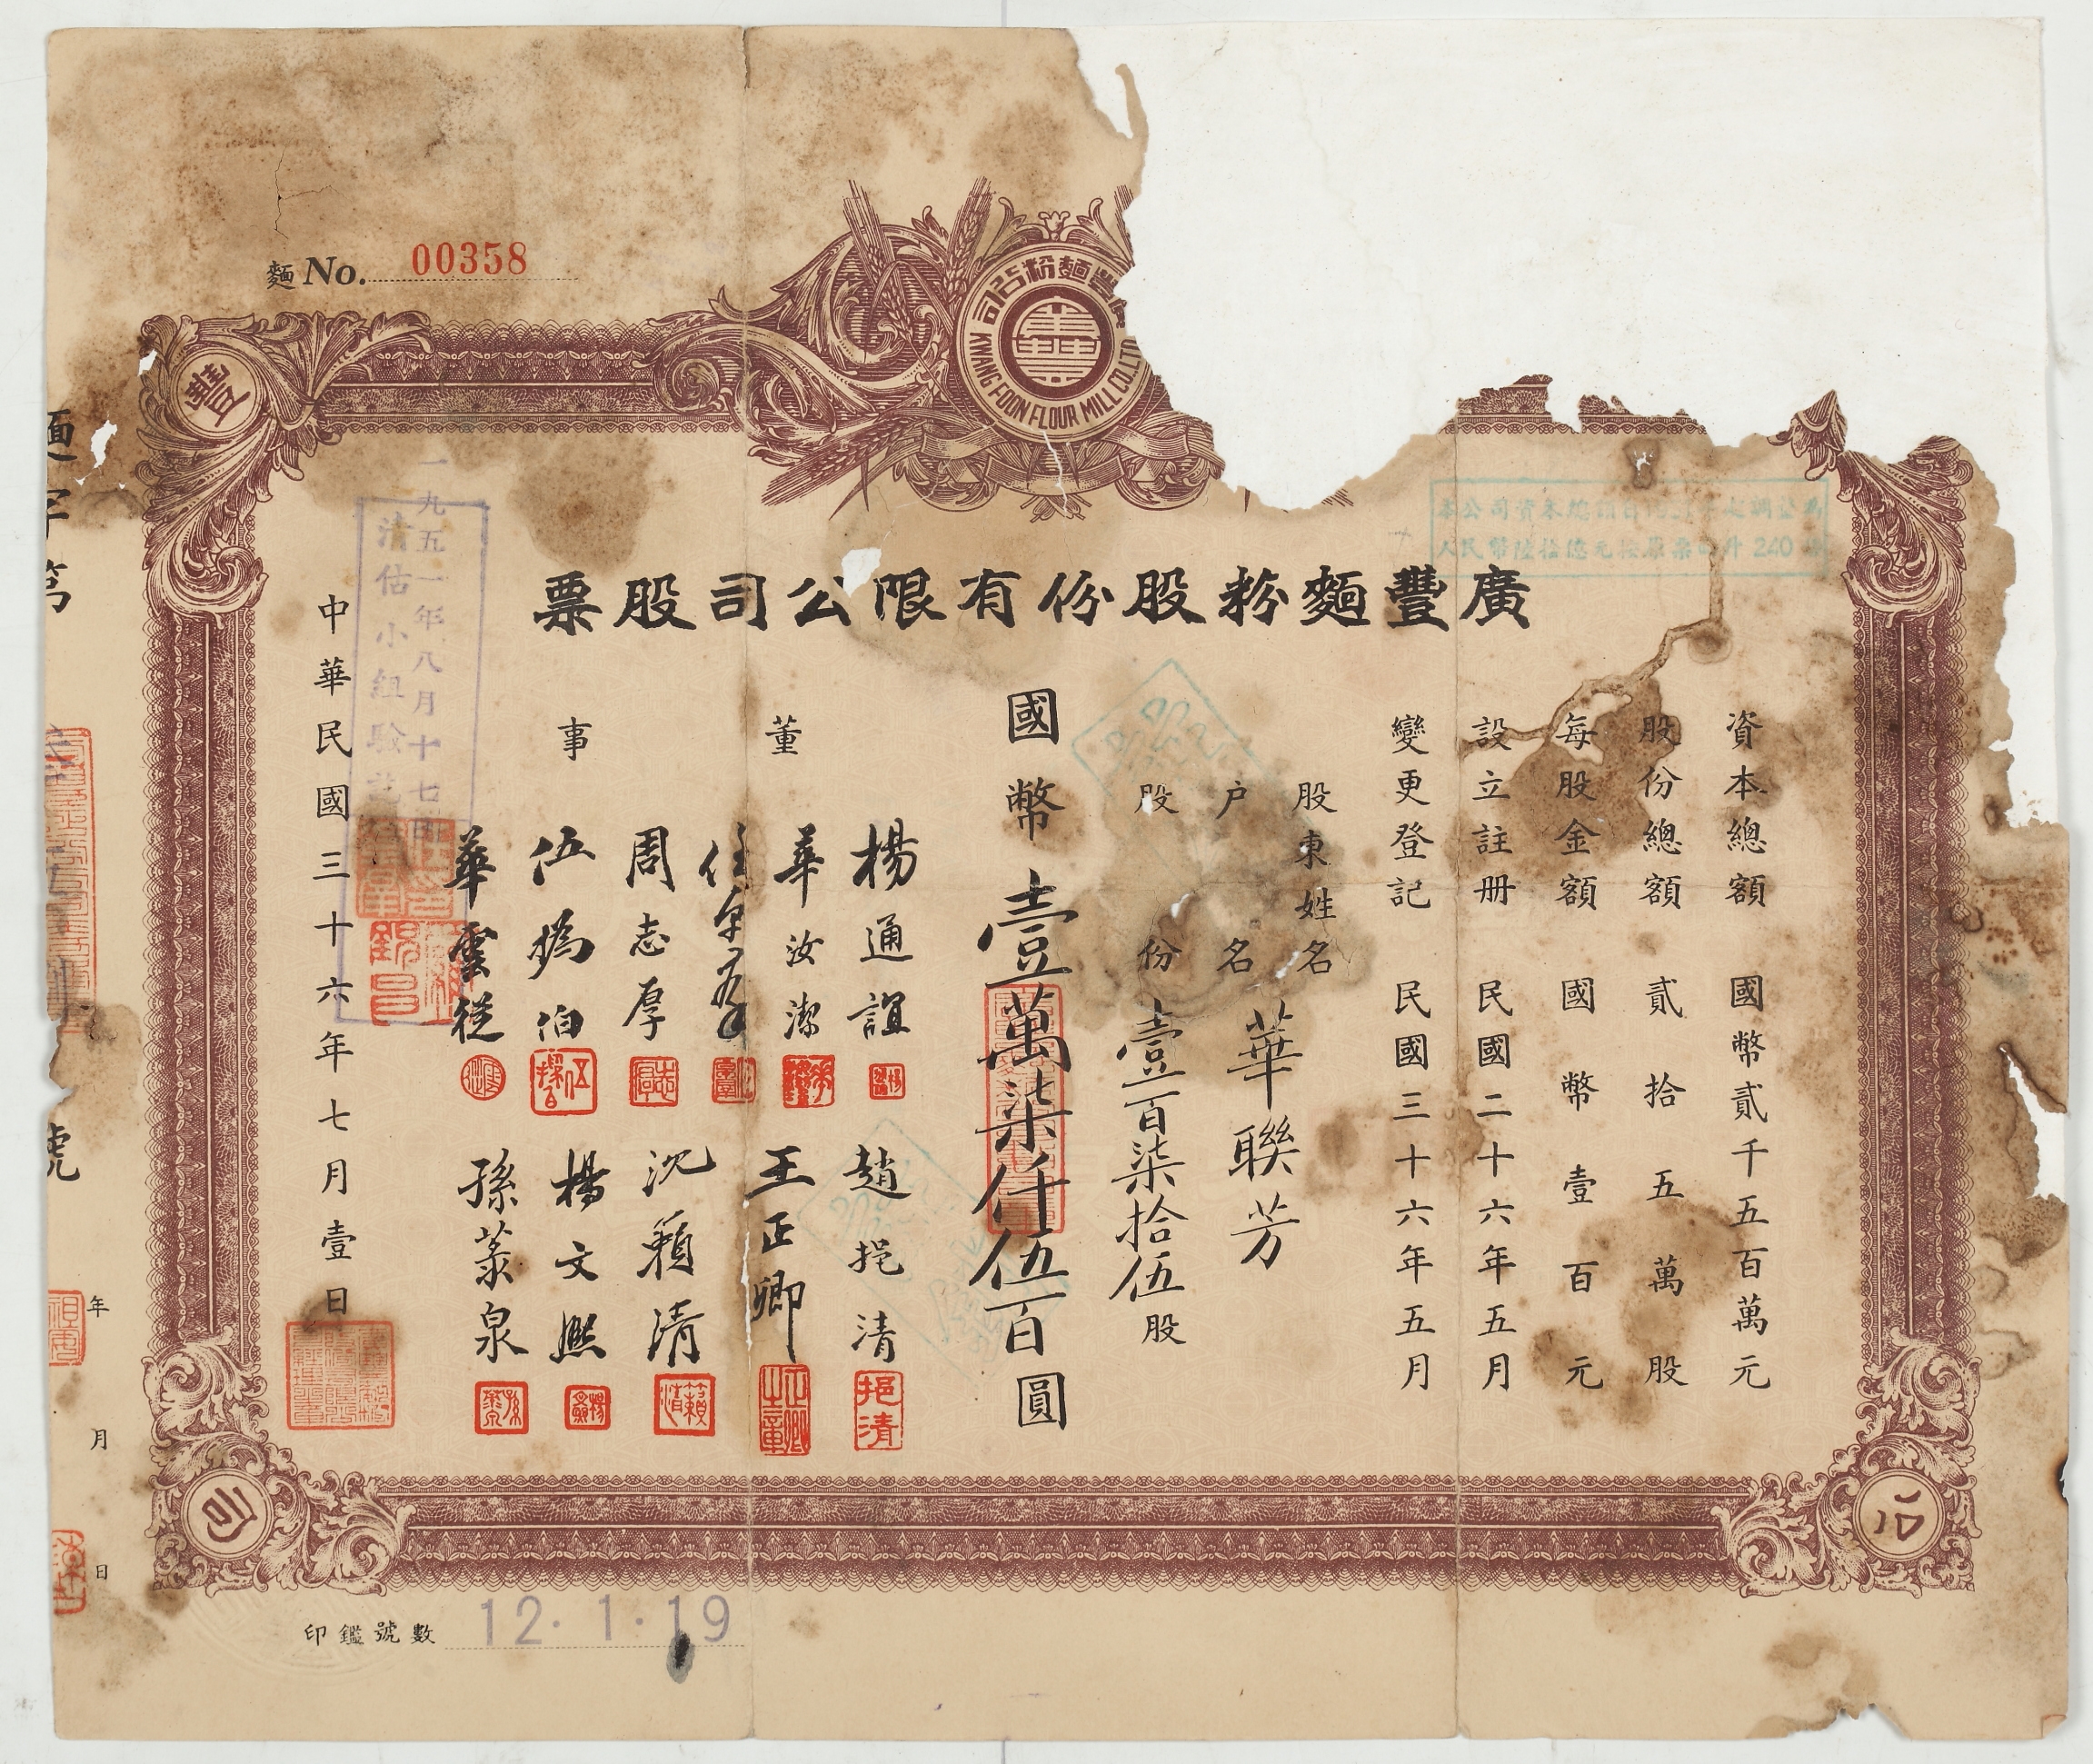 麵 No. 00358
司公粉麵豐廣
KWANG FOON FLOUR MILL CO. LTD
豐
司
公
廣豐麵粉股份有限公司股票
人民幣陸拾億元 240
資本總額 國幣貳千五百萬元
股份總額 貳拾五萬股
每股金額 國幣壹百元
設立註冊 民國二十六年五月
變更登記 民國三十六年五月
股東姓名
户名 華聯芳
股份 壹百柒拾伍股
國幣壹萬柒仟伍百圓
董事
楊通誼
華汝潔
周志厚
伍撝伯
華雲從
趙挹清
王正卿
沈籟清
楊文熙
孫蒸泉
挹清
中華民國三十六年七月壹日
一九五一年八月十七日
清估小組驗訖
麵字第
號
年
月
日
印鑑號數 12.1.19